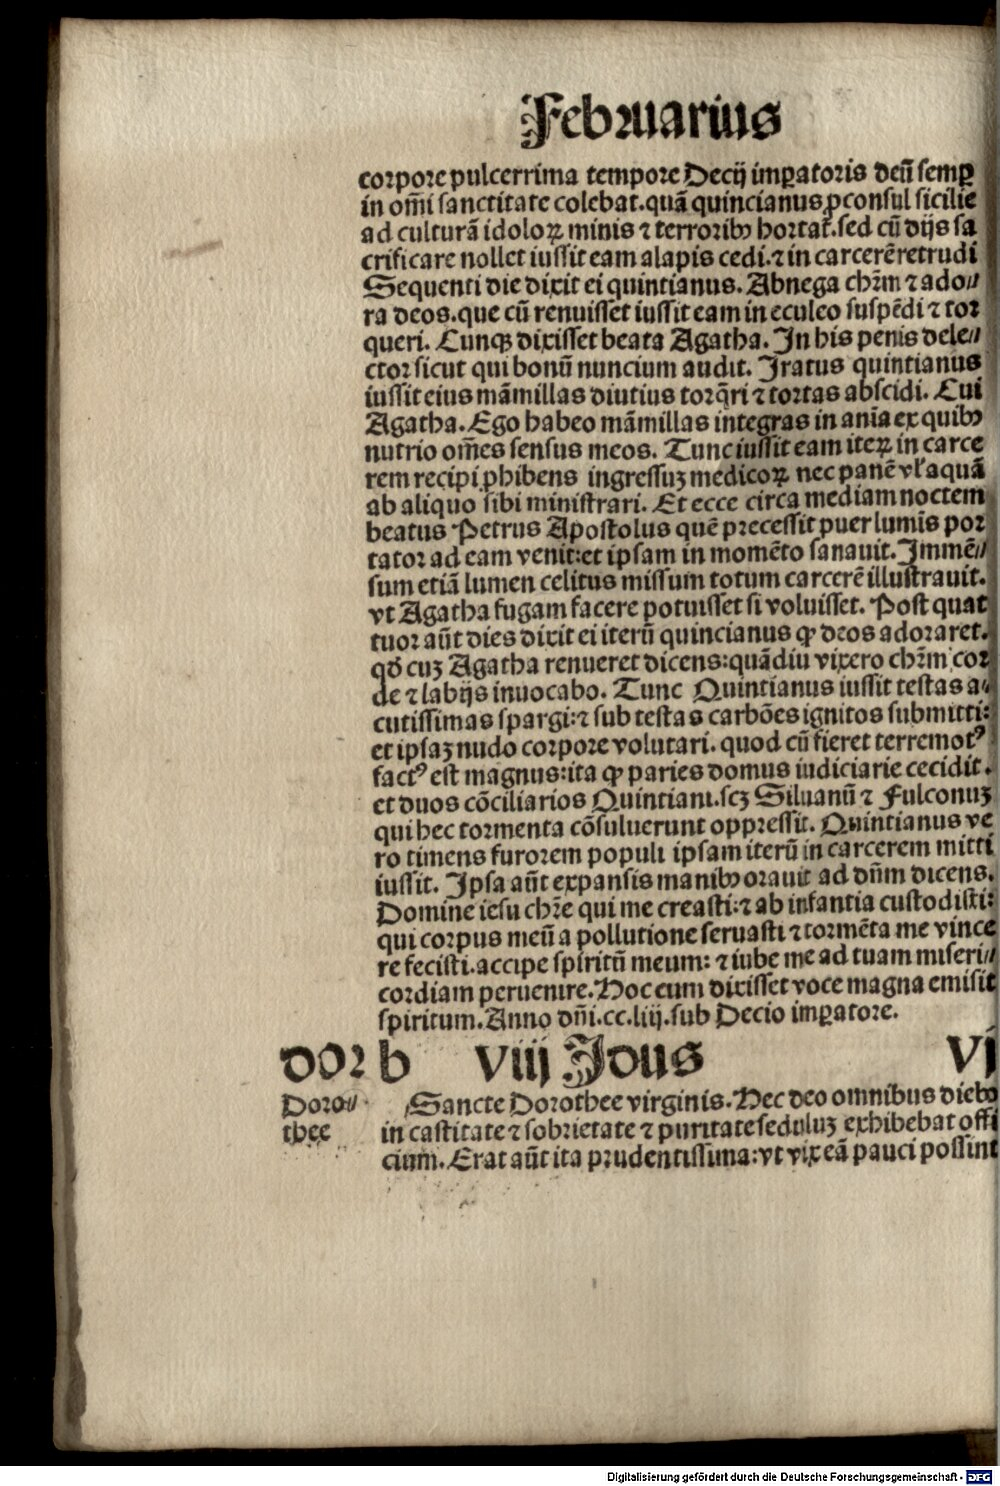 Februarius
corpore pulcerrima tempore Decij imꝑatoris deū semꝑ
in om̄i sanctitate colebat.quā quincianus ꝓconsul sicilie
ad culturā idoloꝝ minis ⁊ terroribꝰ hortat̄.sed cū dijs sa
crificare nollet iussit eam alapis cedi.⁊ in carcerē retrudi
Sequenti die dixit ei quintianus. Abnega chr̄m ⁊ ado⸗
ra deos.que cū renuisset iussit eam in eculeo suspēdi ⁊ tor
queri. Cunqꝫ dixisset beata Agatha. In his penis dele⸗
ctor sicut qui bonū nuncium audit. Iratus quintianus
iussit eius mām̄illas diutius torq̄ri ⁊ tortas abscidi. Cui
Agatha. Ego habeo mām̄illas integras in anīa ex quibꝰ
nutrio om̄es sensus meos. Tunc iussit eam iteꝝ in carce
rem recipi ꝓhibens ingressuꝫ medicoꝝ nec panē vl̓ aquā
ab aliquo sibi ministrari. Et ecce circa mediam noctem
beatus Petrus Apostolus quē precessit puer lumīs por
tator ad eam venit:et ipsam in momēto sanauit.Immē⸗
sum etiā lumen celitus missum totum carcerē illustrauit.
vt Agatha fugam facere potuisset si voluisset. Post quat
tuor aūt dies dixit ei iterū quincianus ꝙ deos adoraret.
qđ cuꝫ Agatha renueret dicens:quādiu vixero chr̄m cor
de ⁊ labijs inuocabo. Tunc Quintianus iussit testas a⸗
cutissimas spargi:⁊ sub testas carbōes ignitos submitti:
et ipsaꝫ nudo corpore volutari. quod cū fieret terremotꝰ
factꝰ est magnus:ita ꝙ paries domus iudiciarie cecidit.
et duos cōciliarios Quintiani.scꝫ Siluanū ⁊ Fulconuꝫ
qui hec tormenta cōsuluerunt oppressit. Quintianus ve
ro timens furorem populi ipsam iterū in carcerem mitti
iussit. Ipsa aūt expansis manibꝰ orauit ad dn̄m dicens.
Domine iesu chr̄e qui me creasti:⁊ ab infantia custodisti:
qui corpus meū a pollutione seruasti ⁊ tormēta me vince
re fecisti.accipe spiritū meum: ⁊ iube me ad tuam miseri⸗
cordiam peruenire.Hoc cum dixisset voce magna emisit
spiritum.Anno dn̄i.cc.liij.sub Decio imꝑatore.
dor b viij Idus vj
Doro⸗
thee
Sancte Dorothee virginis.Hec deo omnibus diebꝰ
in castitate ⁊ sobrietate ⁊ puritate seduluꝫ exhibebat offi
cium. Erat aūt ita prudentissima:vt vix eā pauci possint
Digitalisierung gefördert durch die Deutsche Forschungsgemeinschaft - DFG